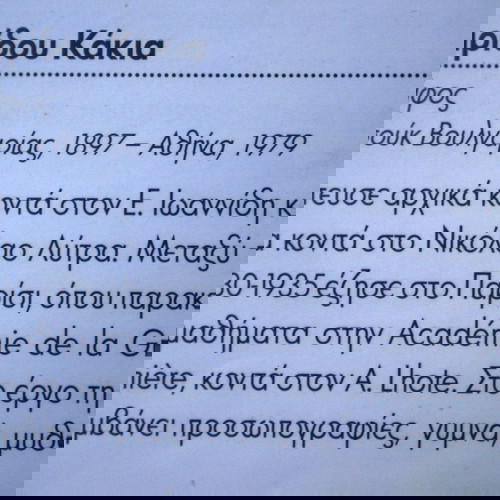 ρίδου Κάκια
φος
ούκ Βουλγαρίας, 1897 – Αθήνα, 1979
τευσε αρχικά κοντά στον Ε. Ιωαννίδη κ
κοντά στο Νικόλαο Λύτρα. Μεταξύ
30-1935 έζησε στο Παρίσι, όπου παρακ
μαθήματα στην Académie de la Gr
ière, κοντά στον A. Lhote. Στο έργο τη
μβάνει προσωπογραφίες, γυμνά,